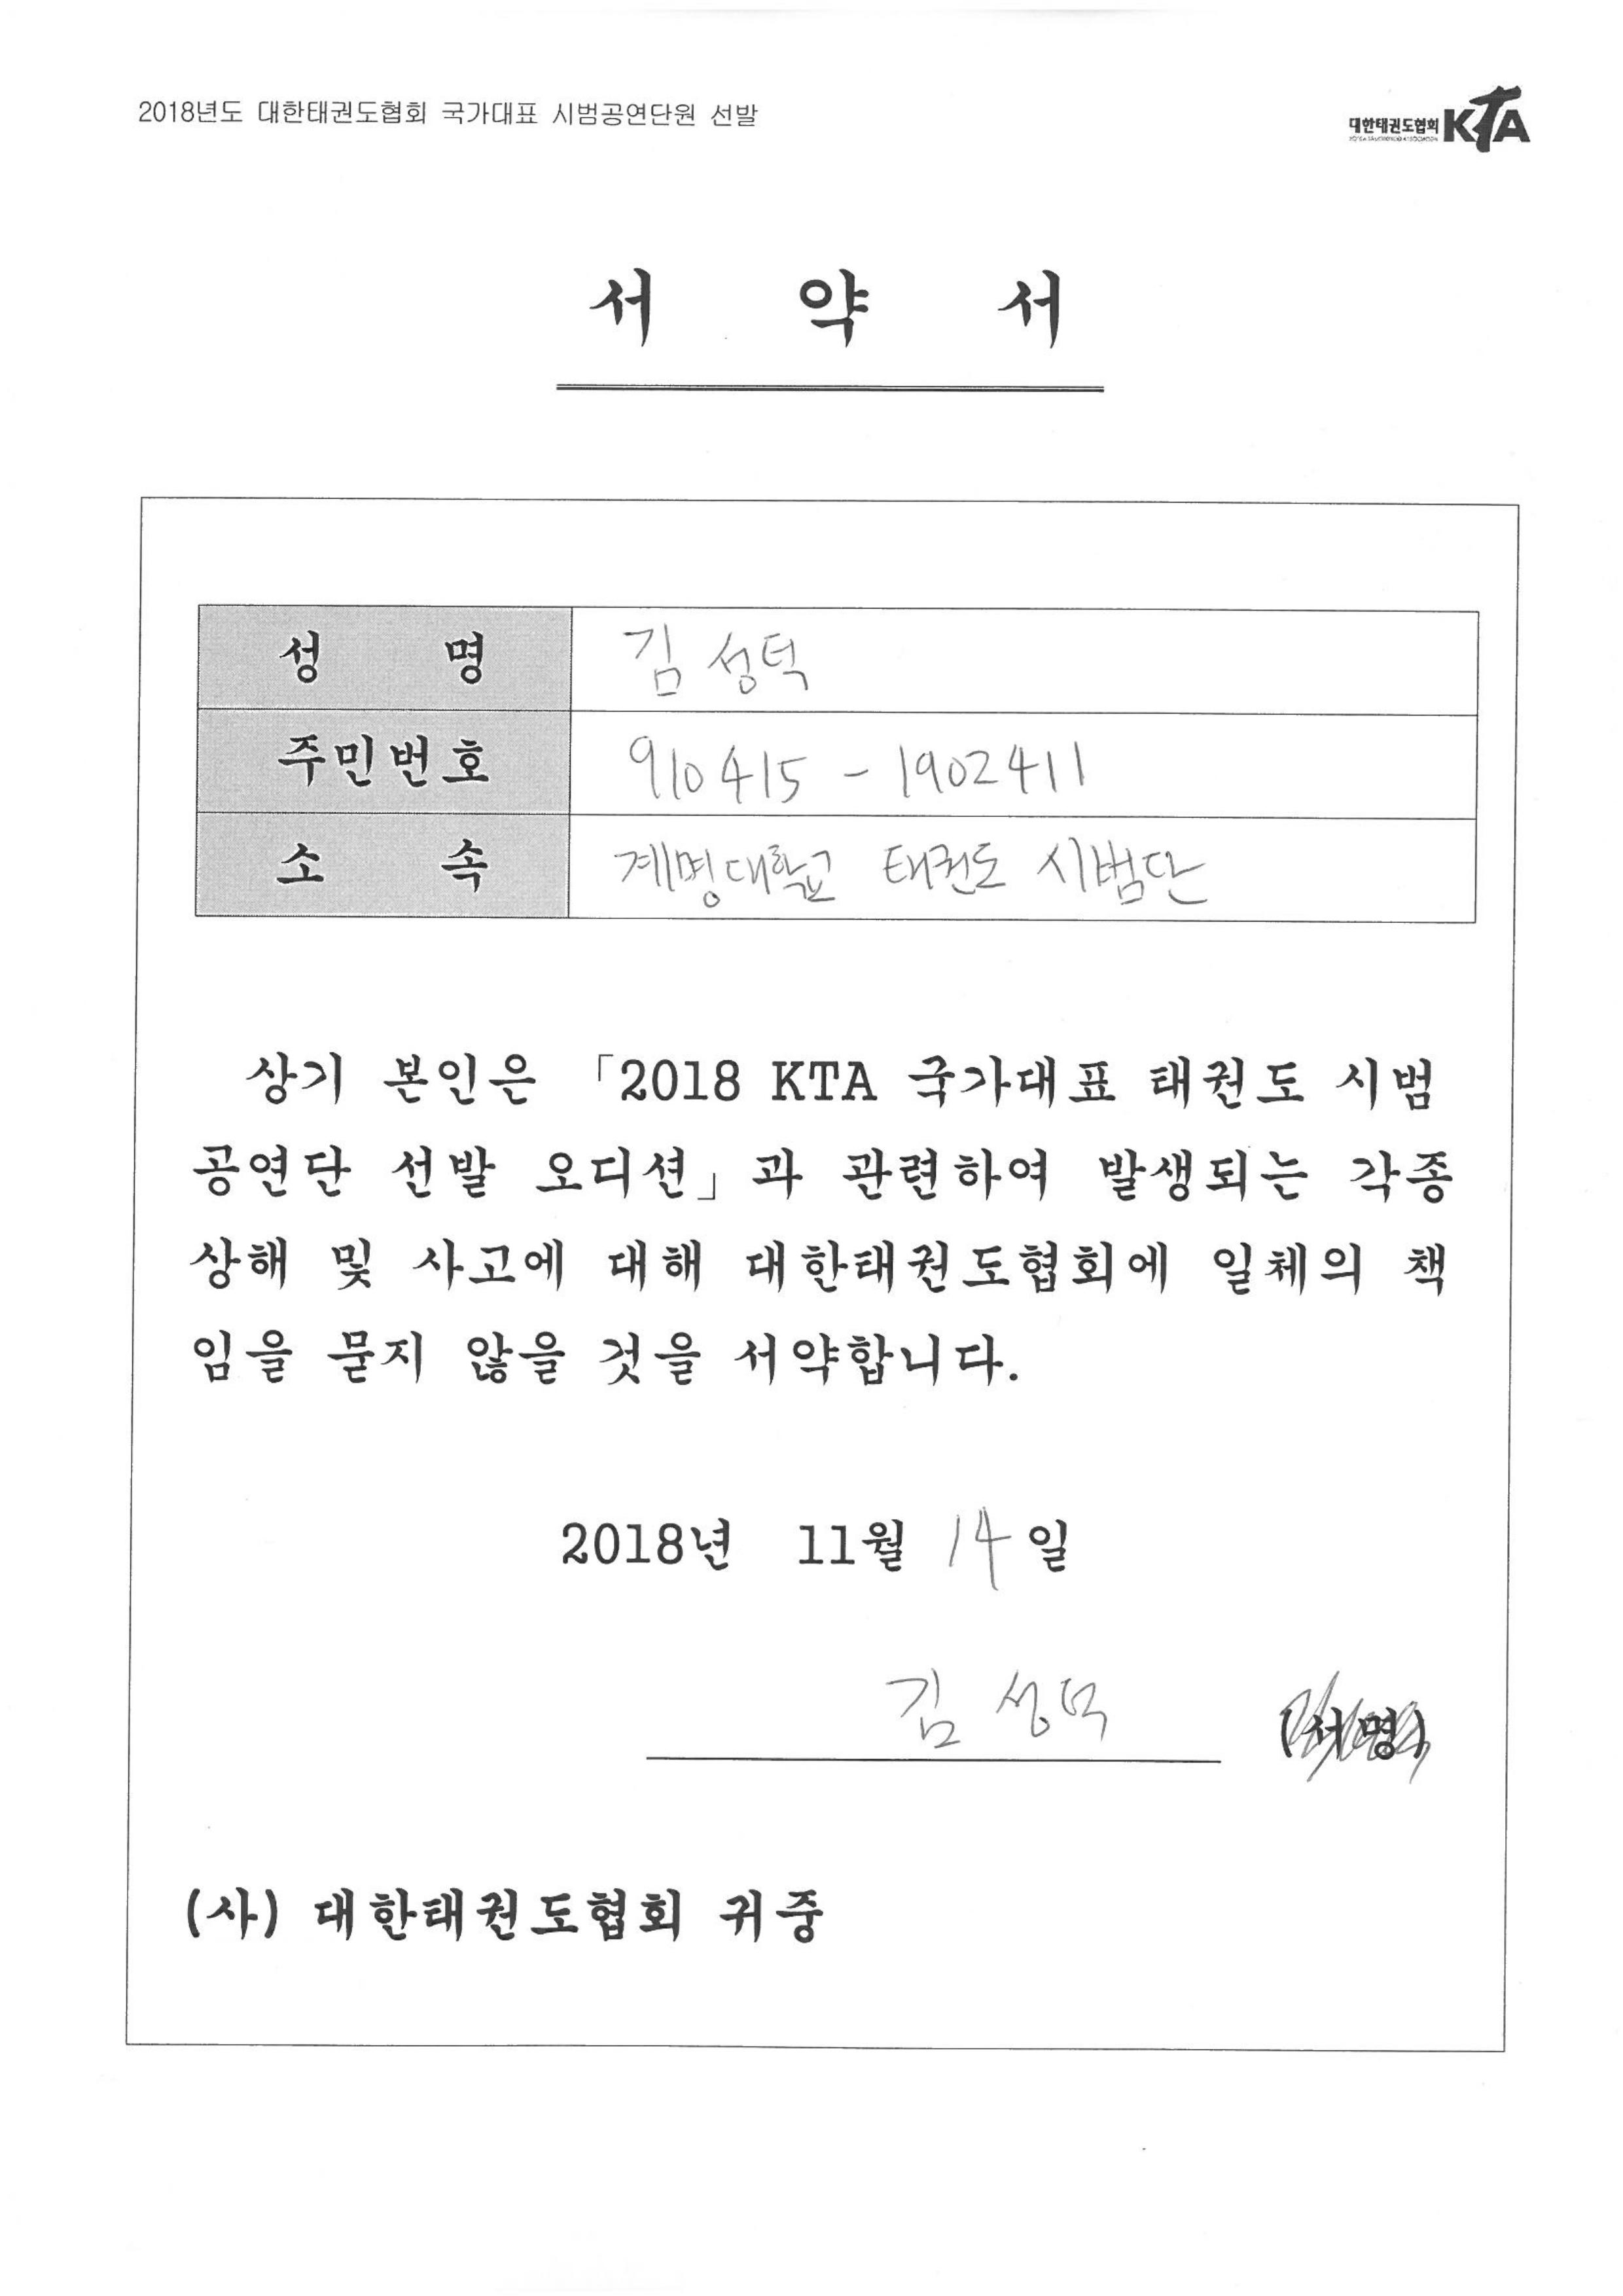 2018년도 대한태권도협회 국가대표 시범공연단원 선발
대한태권도협회 KTA
서 약 서
성 명 김성덕
주민번호 910415 - 1902411
소 속 계명대학교 태권도 시범단
상기 본인은 「2018 KTA 국가대표 태권도 시범
공연단 선발 오디션」과 관련하여 발생되는 각종
상해 및 사고에 대해 대한태권도협회에 일체의 책
임을 묻지 않을 것을 서약합니다.
2018년 11월 14일
김성덕 (서명)
(사) 대한태권도협회 귀중